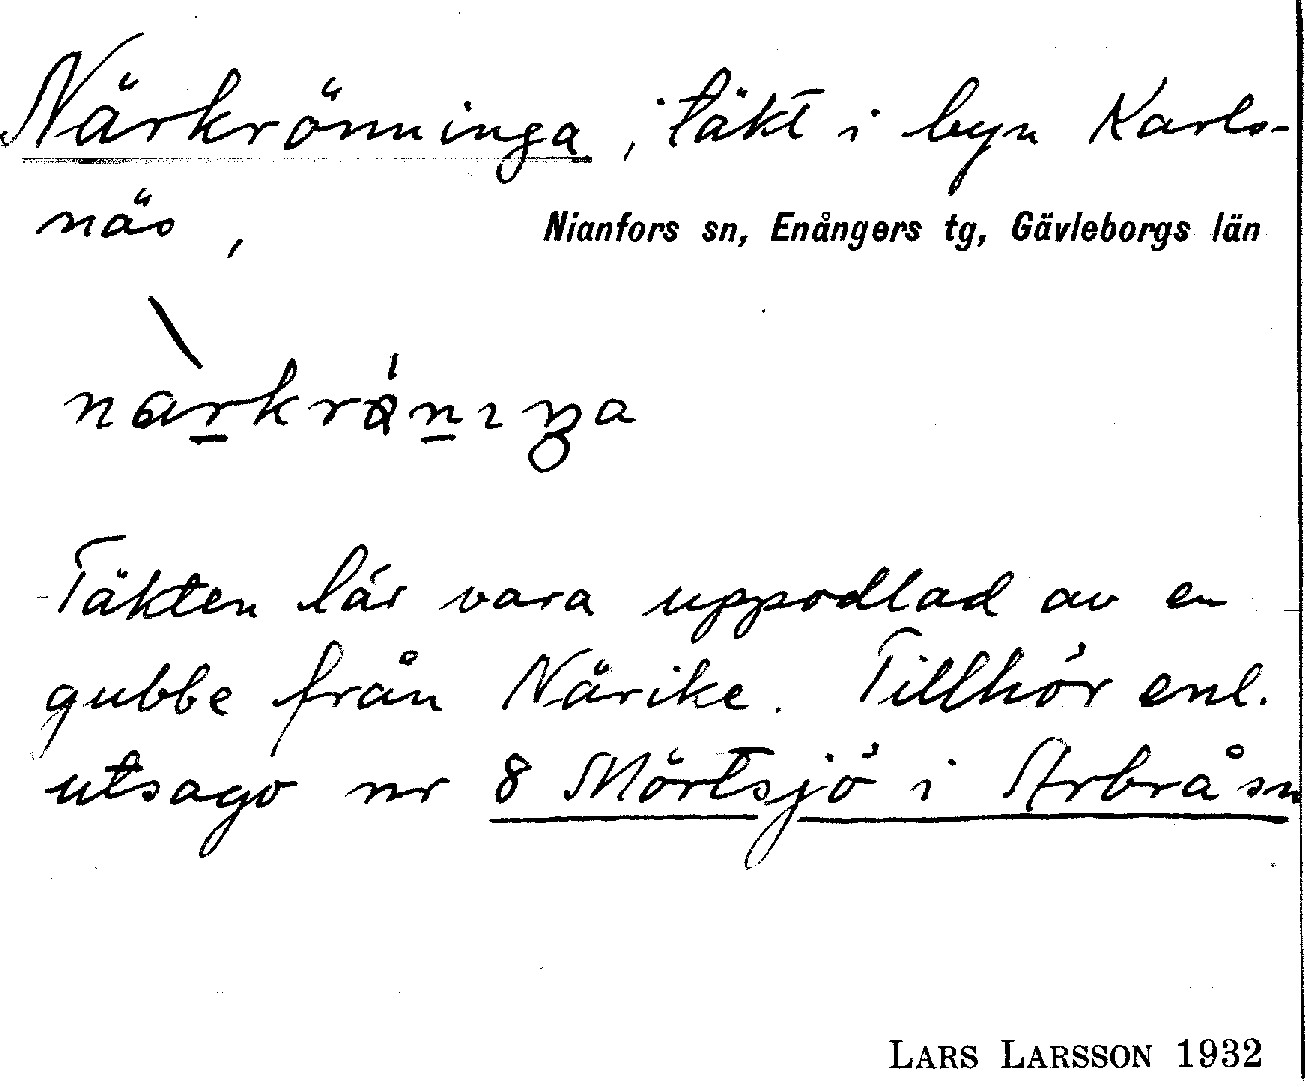 Närkrönninga, täkt i byn Karls-
näs, Nianfors sn, Enångers tg, Gävleborgs län
Täkten lär vara uppodlad av en
gubbe från Närike. Tillhör enl.
utsago nr 8 Mörtsjö i Arbrå sn
LARS LARSSON 1932